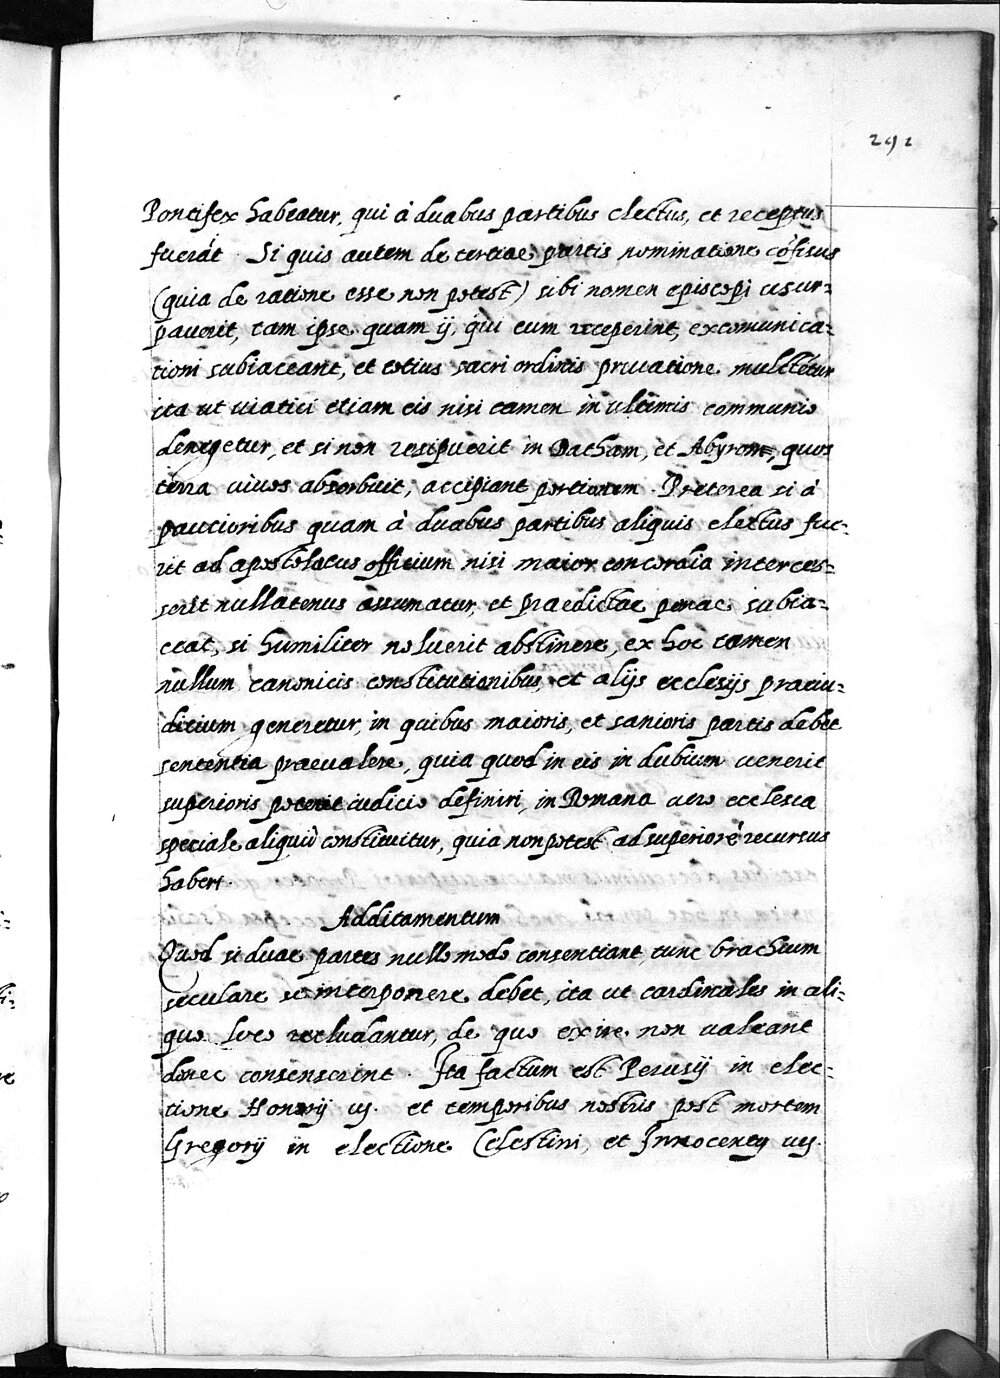 291
Pontifex habeatur, qui à duabus partibus electus, et receptus
fuerát. Si quis autem de tertiae partis nominatione cõfisus
(quia de ratione esse non potest) sibi nomen episcopi usur-
pauerit, tam ipse quam ij, qui eum receperint, excomunica-
tioni subiaceant, et totius sacri ordinis priuatione mulctẽtur
ita ut uiatici etiam eis nisi tamen in ultimis communio
denegetur, et si non resipuerit in Datham, et Abyrom, quos
terra uiuos absorbuit, accipiant portionem. Preterea si à
paucioribus quam à duabus partibus aliquis electus fue-
rit ad apostolatus officium nisi maior concordia interces-
serit nullatenus assumatur, et praedictae penae subia-
ceat, si humiliter noluerit abstinere, ex hoc tamen
nullum canonicis constitutionibus, et alijs ecclesijs praeiu-
dicium generetur, in quibus maioris, et sanioris partis debet
sententia praeualere, quia quod in eis in dubium uenerit
superioris poterit iudicio definiri, in Romana uero ecclesia
speciale aliquid constituitur, quia non potest ad superiorẽ recursus
haberi.
Additamentum
Quod si duae partes nullo modo consentiant, tunc brachium
seculare se interponere debet, ita ut cardinales in ali-
quo loco recludantur, de quo exire non ualeant
donec consenserint. Ita factum est Perusij in elec-
tione Honorij iij. et temporibus nostris post mortem
Gregorij in electione Celestini, et Innocentij iiij.